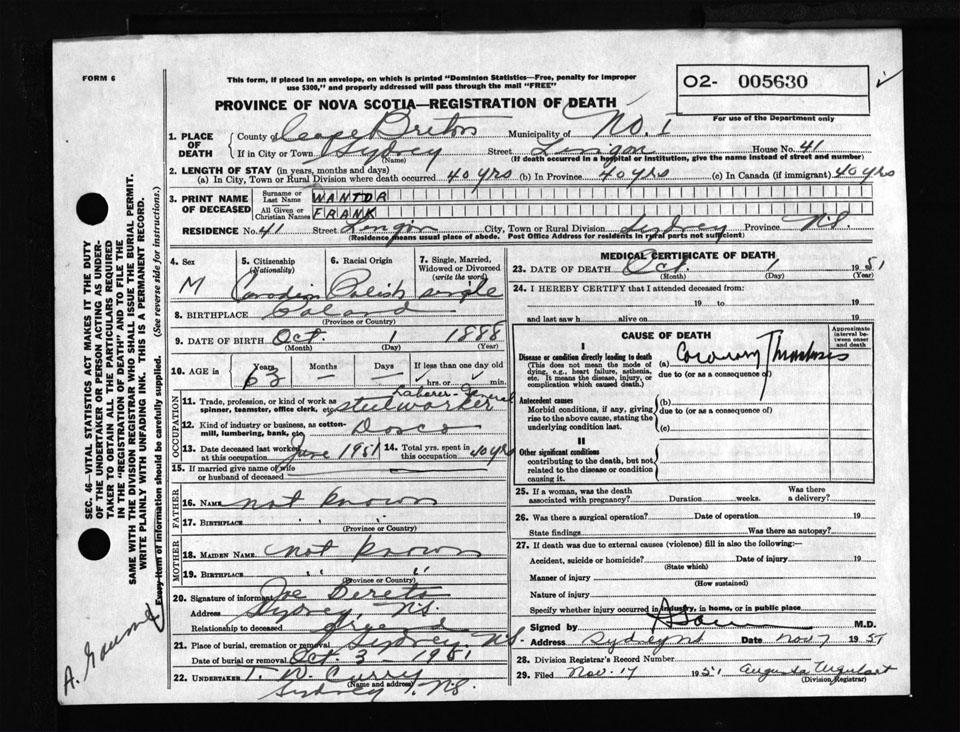 FORM 6
This form, if placed in an envelope, on which is printed "Dominion Statistics—Free, penalty for improper
use $300," and properly addressed will pass through the mail "FREE"
O2- 005630
For use of the Department only
PROVINCE OF NOVA SCOTIA—REGISTRATION OF DEATH
1. PLACE OF DEATH County of Cape Breton Municipality of No. 1
If in City or Town Sydney (Name) Street Lingan House No. 41
(If death occurred in a hospital or institution, give the name instead of street and number)
2. LENGTH OF STAY (in years, months and days)
(a) In City, Town or Rural Division where death occurred 40 yrs (b) In Province 40 yrs (c) In Canada (if immigrant) 40 yrs
3. PRINT NAME OF DECEASED Surname or Last Name WANTOR
All Given or Christian Names FRANK
RESIDENCE No. 41 Street Lingan City, Town or Rural Division Sydney Province N.S.
(Residence means usual place of abode. Post Office Address for residents in rural parts not sufficient)
4. Sex M
5. Citizenship (Nationality) Canadian
6. Racial Origin Polish
7. Single, Married, Widowed or Divorced (write the word) single
8. BIRTHPLACE Poland
(Province or Country)
9. DATE OF BIRTH Oct. 1 1888
(Month) (Day) (Year)
10. AGE in Years 63 Months — Days — If less than one day old hrs. or min.
11. Trade, profession, or kind of work as spinner, teamster, office clerk, etc. Laborer - General steelworker
12. Kind of industry or business, as cotton-mill, lumbering, bank, etc. Dosco
13. Date deceased last worked at this occupation June 1951
14. Total yrs. spent in this occupation 40 yrs
OCCUPATION
15. If married give name of wife or husband of deceased —
FATHER
16. NAME not known
17. BIRTHPLACE " "
(Province or Country)
MOTHER
18. MAIDEN NAME not known
19. BIRTHPLACE " "
(Province or Country)
20. Signature of informant Joe
Address Sydney, N.S.
Relationship to deceased
21. Place of burial, cremation or removal Sydney, N.S.
Date of burial or removal Oct. 3 - 1951
22. UNDERTAKER T. W. Curry
Sydney, N.S.
MEDICAL CERTIFICATE OF DEATH
23. DATE OF DEATH Oct. 1 1951
(Month) (Day) (Year)
24. I HEREBY CERTIFY that I attended deceased from:
19 to 19
and last saw h alive on 19
CAUSE OF DEATH
Approximate interval between onset and death
I
Disease or condition directly leading to death (a) Coronary Thrombosis
(This does not mean the mode of dying, e.g., heart failure, asthenia, etc. It means the disease, injury, or complication which caused death.)
due to (or as a consequence of)
Antecedent causes (b)
Morbid conditions, if any, giving rise to the above cause, stating the underlying condition last.
due to (or as a consequence of)
(c)
II
Other significant conditions
contributing to the death, but not related to the disease or condition causing it.
25. If a woman, was the death associated with pregnancy? Duration weeks. Was there a delivery?
26. Was there a surgical operation? Date of operation 19
State findings Was there an autopsy?
27. If death was due to external causes (violence) fill in also the following:—
Accident, suicide or homicide? Date of injury 19
(State which)
Manner of injury
(How sustained)
Nature of injury
Specify whether injury occurred in industry, in home, or in public place
Signed by M.D.
Address Sydney NS Date Nov 7 1951
28. Division Registrar's Record Number
29. Filed Nov. 17 1951 Augusta Urquhart
(Division Registrar)
SEC. 46—VITAL STATISTICS ACT MAKES IT THE DUTY
OF THE UNDERTAKER OR PERSON ACTING AS UNDERTAKER
TO OBTAIN ALL THE PARTICULARS REQUIRED
IN THE "REGISTRATION OF DEATH" AND TO FILE THE
SAME WITH THE DIVISION REGISTRAR WHO SHALL ISSUE THE BURIAL PERMIT.
WRITE PLAINLY WITH UNFADING INK. THIS IS A PERMANENT RECORD.
Every item of information should be carefully supplied. (See reverse side for instructions.)